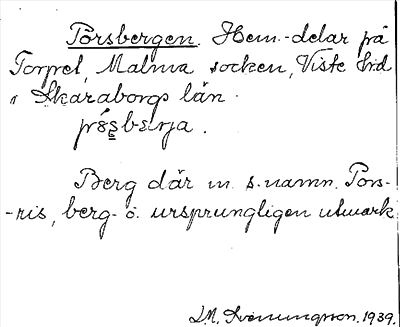 Porsbergen. Hem.-delar på
Torpet, Malma socken, Viste hrd
i Skaraborgs län.
Berg där m. s. namn. Pors-
-ris, berg- o. ursprungligen utmark
L.M. Svenungsson. 1939.